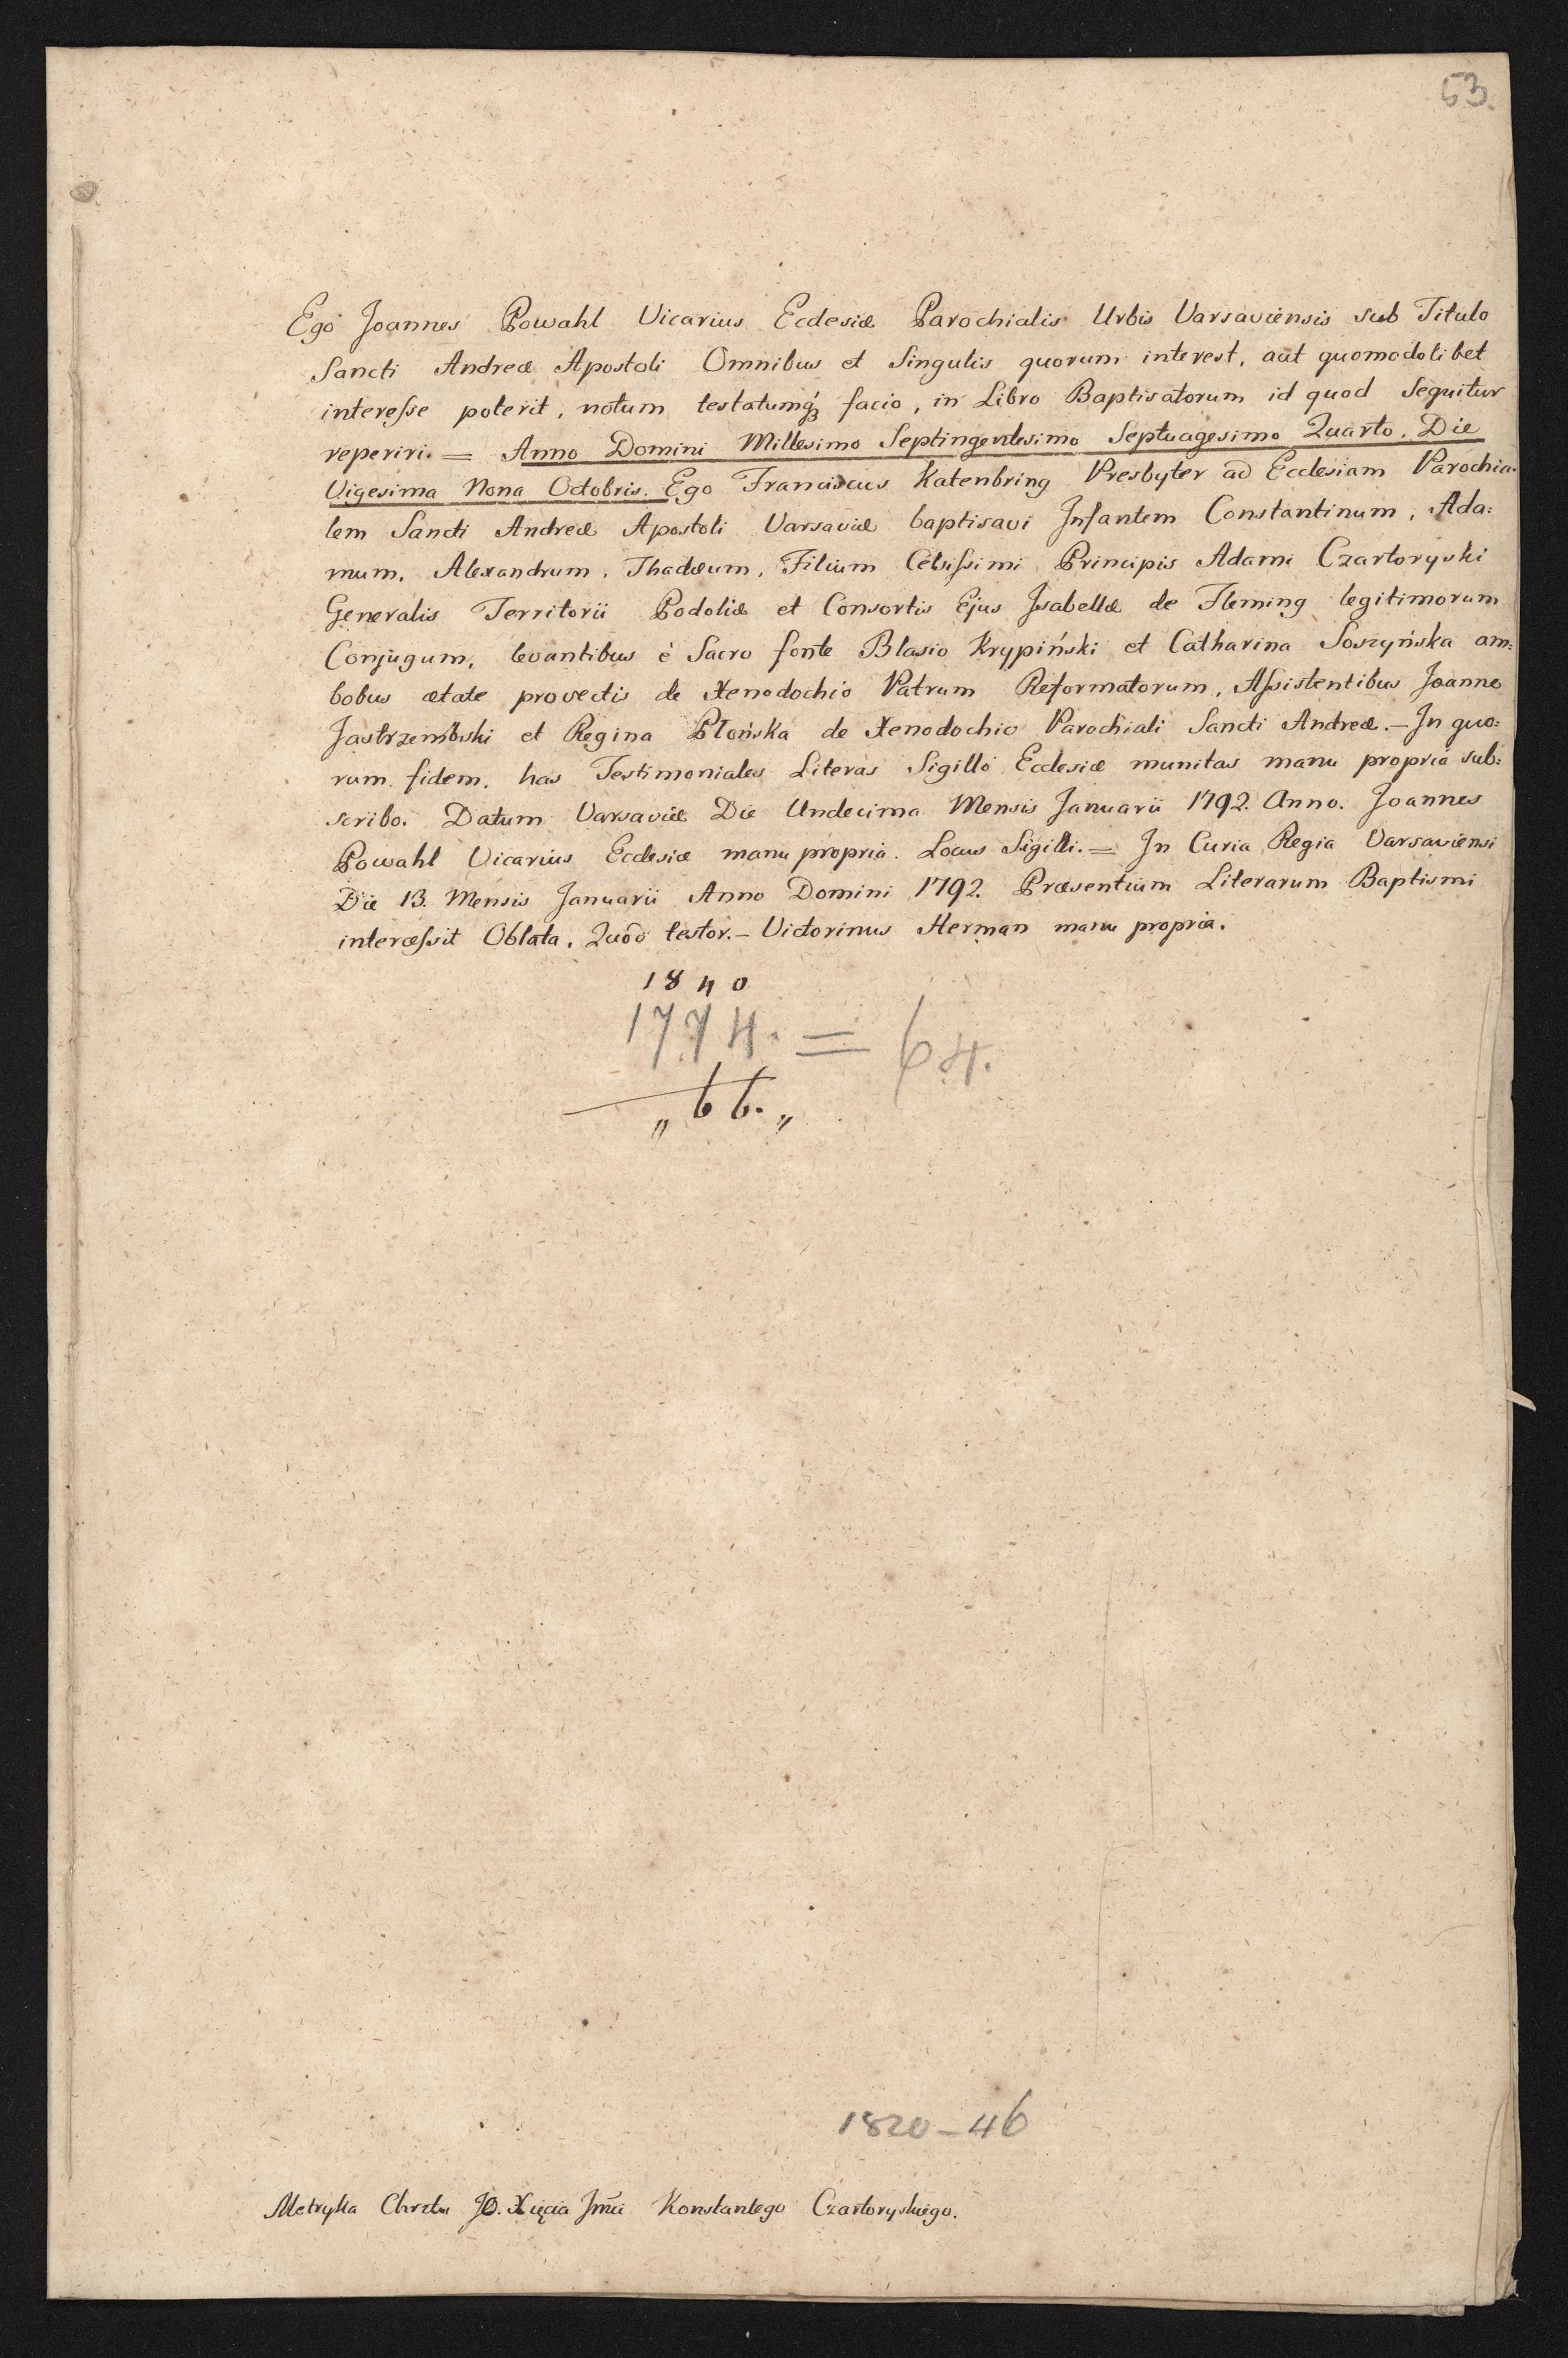 53.
Ego Joannes Powahl Vicarius Ecclesiæ Parochialis Urbis Varsaviensis sub Titulo
Sancti Andreæ Apostoli Omnibus et Singulis quorum interest, aut quomodolibet
interesse poterit, notum testatumq́ꝫ facio, in Libro Baptisatorum id quod Sequitur
reperiri. = Anno Domini Millesimo Septingentesimo Septuagesimo Quarto. Die
Vigesima Nona Octobris. Ego Franciscus Katenbring Presbyter ad Ecclesiam Parochia-
lem Sancti Andreæ Apostoli Varsaviæ baptisavi Infantem Constantinum, Ada:
mum, Alexandrum, Thadæum, Filium Celsissimi Principis Adami Czartoryski
Generalis Territorii Podoliæ et Consortis Ejus Isabellæ de Fleming legitimorum
Conjugum, levantibus è Sacro fonte Blasio Krypiński et Catharina Soszyńska am:
bobus ætate provectis de Xenodochio Patrum Reformatorum, Assistentibus Joanne
Jastrzembski et Regina Płońska de Xenodochio Parochiali Sancti Andreæ. – In quo:
rum fidem, has Testimoniales Literas Sigillo Ecclesiæ munitas manu propria sub:
scribo. Datum Varsaviæ Die Undecima Mensis Januarii 1792. Anno. Joannes
Powahl Vicarius Ecclesiæ manu propria. Locus Sigilli. = In Curia Regia Varsaviensi
Die 13. Mensis Januarii Anno Domini 1792. Præsentium Literarum Baptismi
intercessit Oblata. Quod testor. – Victorinus Herman manu propria.
1840
1774. = 64.
„ 66. „
1820 – 46
Metryka Chrztu JO. Xięcia Jmci Konstantego Czartoryskiego.